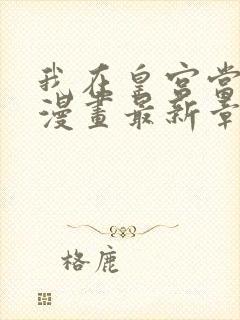 我在皇宫當
漫畫最新章
格鹿